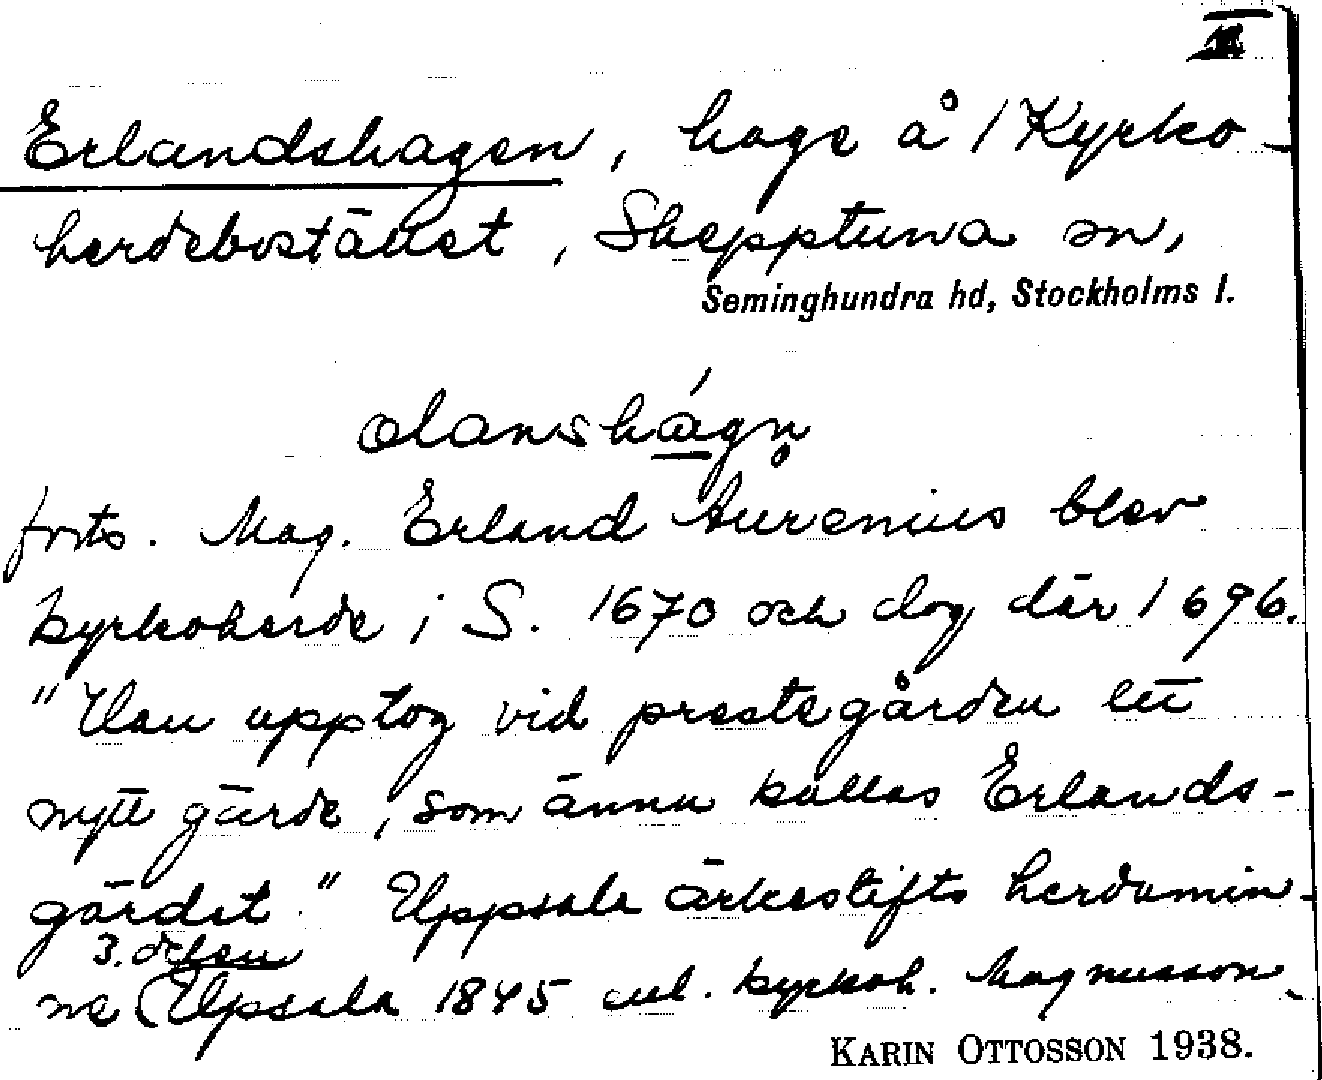 II
Erlandshagen, hage å 1 Kyrko-
herdebostället, Skepptuna sn,
Seminghundra hd, Stockholms l.
forts. Mag. Erland Aurenius blev
kyrkoherde i S. 1670 och dog där 1696.
"Han upptog vid prestegården ett
nytt gärde, som ännu kallas Erlands-
gärdet." Uppsala ärkestifts herdamin-
3. delen
ne (Upsala 1845 enl. kyrkoh. Magnusson.
KARIN OTTOSSON 1938.